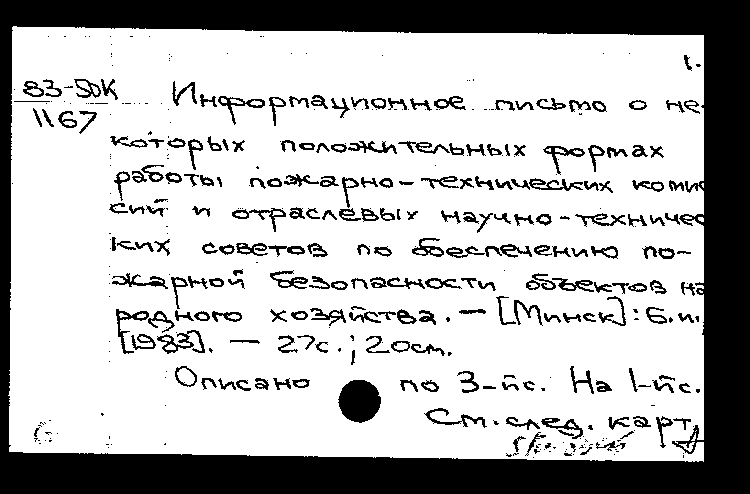 1.
83-5DK
1167
Информационное письмо о не-
которых положительных формах
работы пожарно-технических комис
сий и отраслевых научно-техничес
ких советов по обеспечению по-
жарной безопасности объектов на
родного хозяйства. — [Минск]: Б.и.,
[1983]. — 27с.; 20см.
Описано по 3-й с. На 1-й с.
См. след. карт.